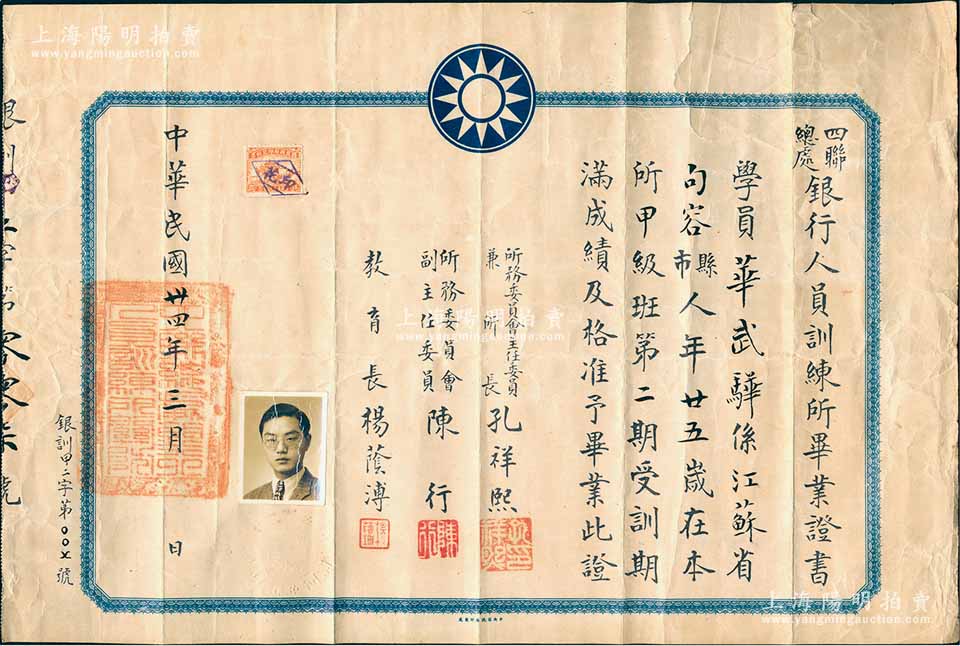 四聯總處銀行人員訓練所畢業證書
學員華武驊係江蘇省
句容縣市人年廿五歲在本
所甲級班第二期受訓期
滿成績及格准予畢業此證
所務委員會主任委員
兼所長孔祥熙
所務委員會
副主任委員陳行
教育長楊蔭溥
中華民國卅四年三月 日
銀訓甲二字第００七號
上海陽明拍賣
www.yangmingauction.com
上海陽明拍賣
www.yangmingauction.com
上海陽明拍賣
www.yangmingauction.com